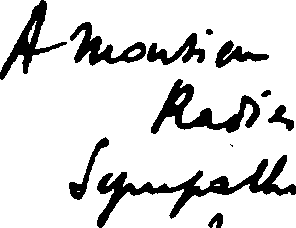 A Monsieur
Radier
Sympathi